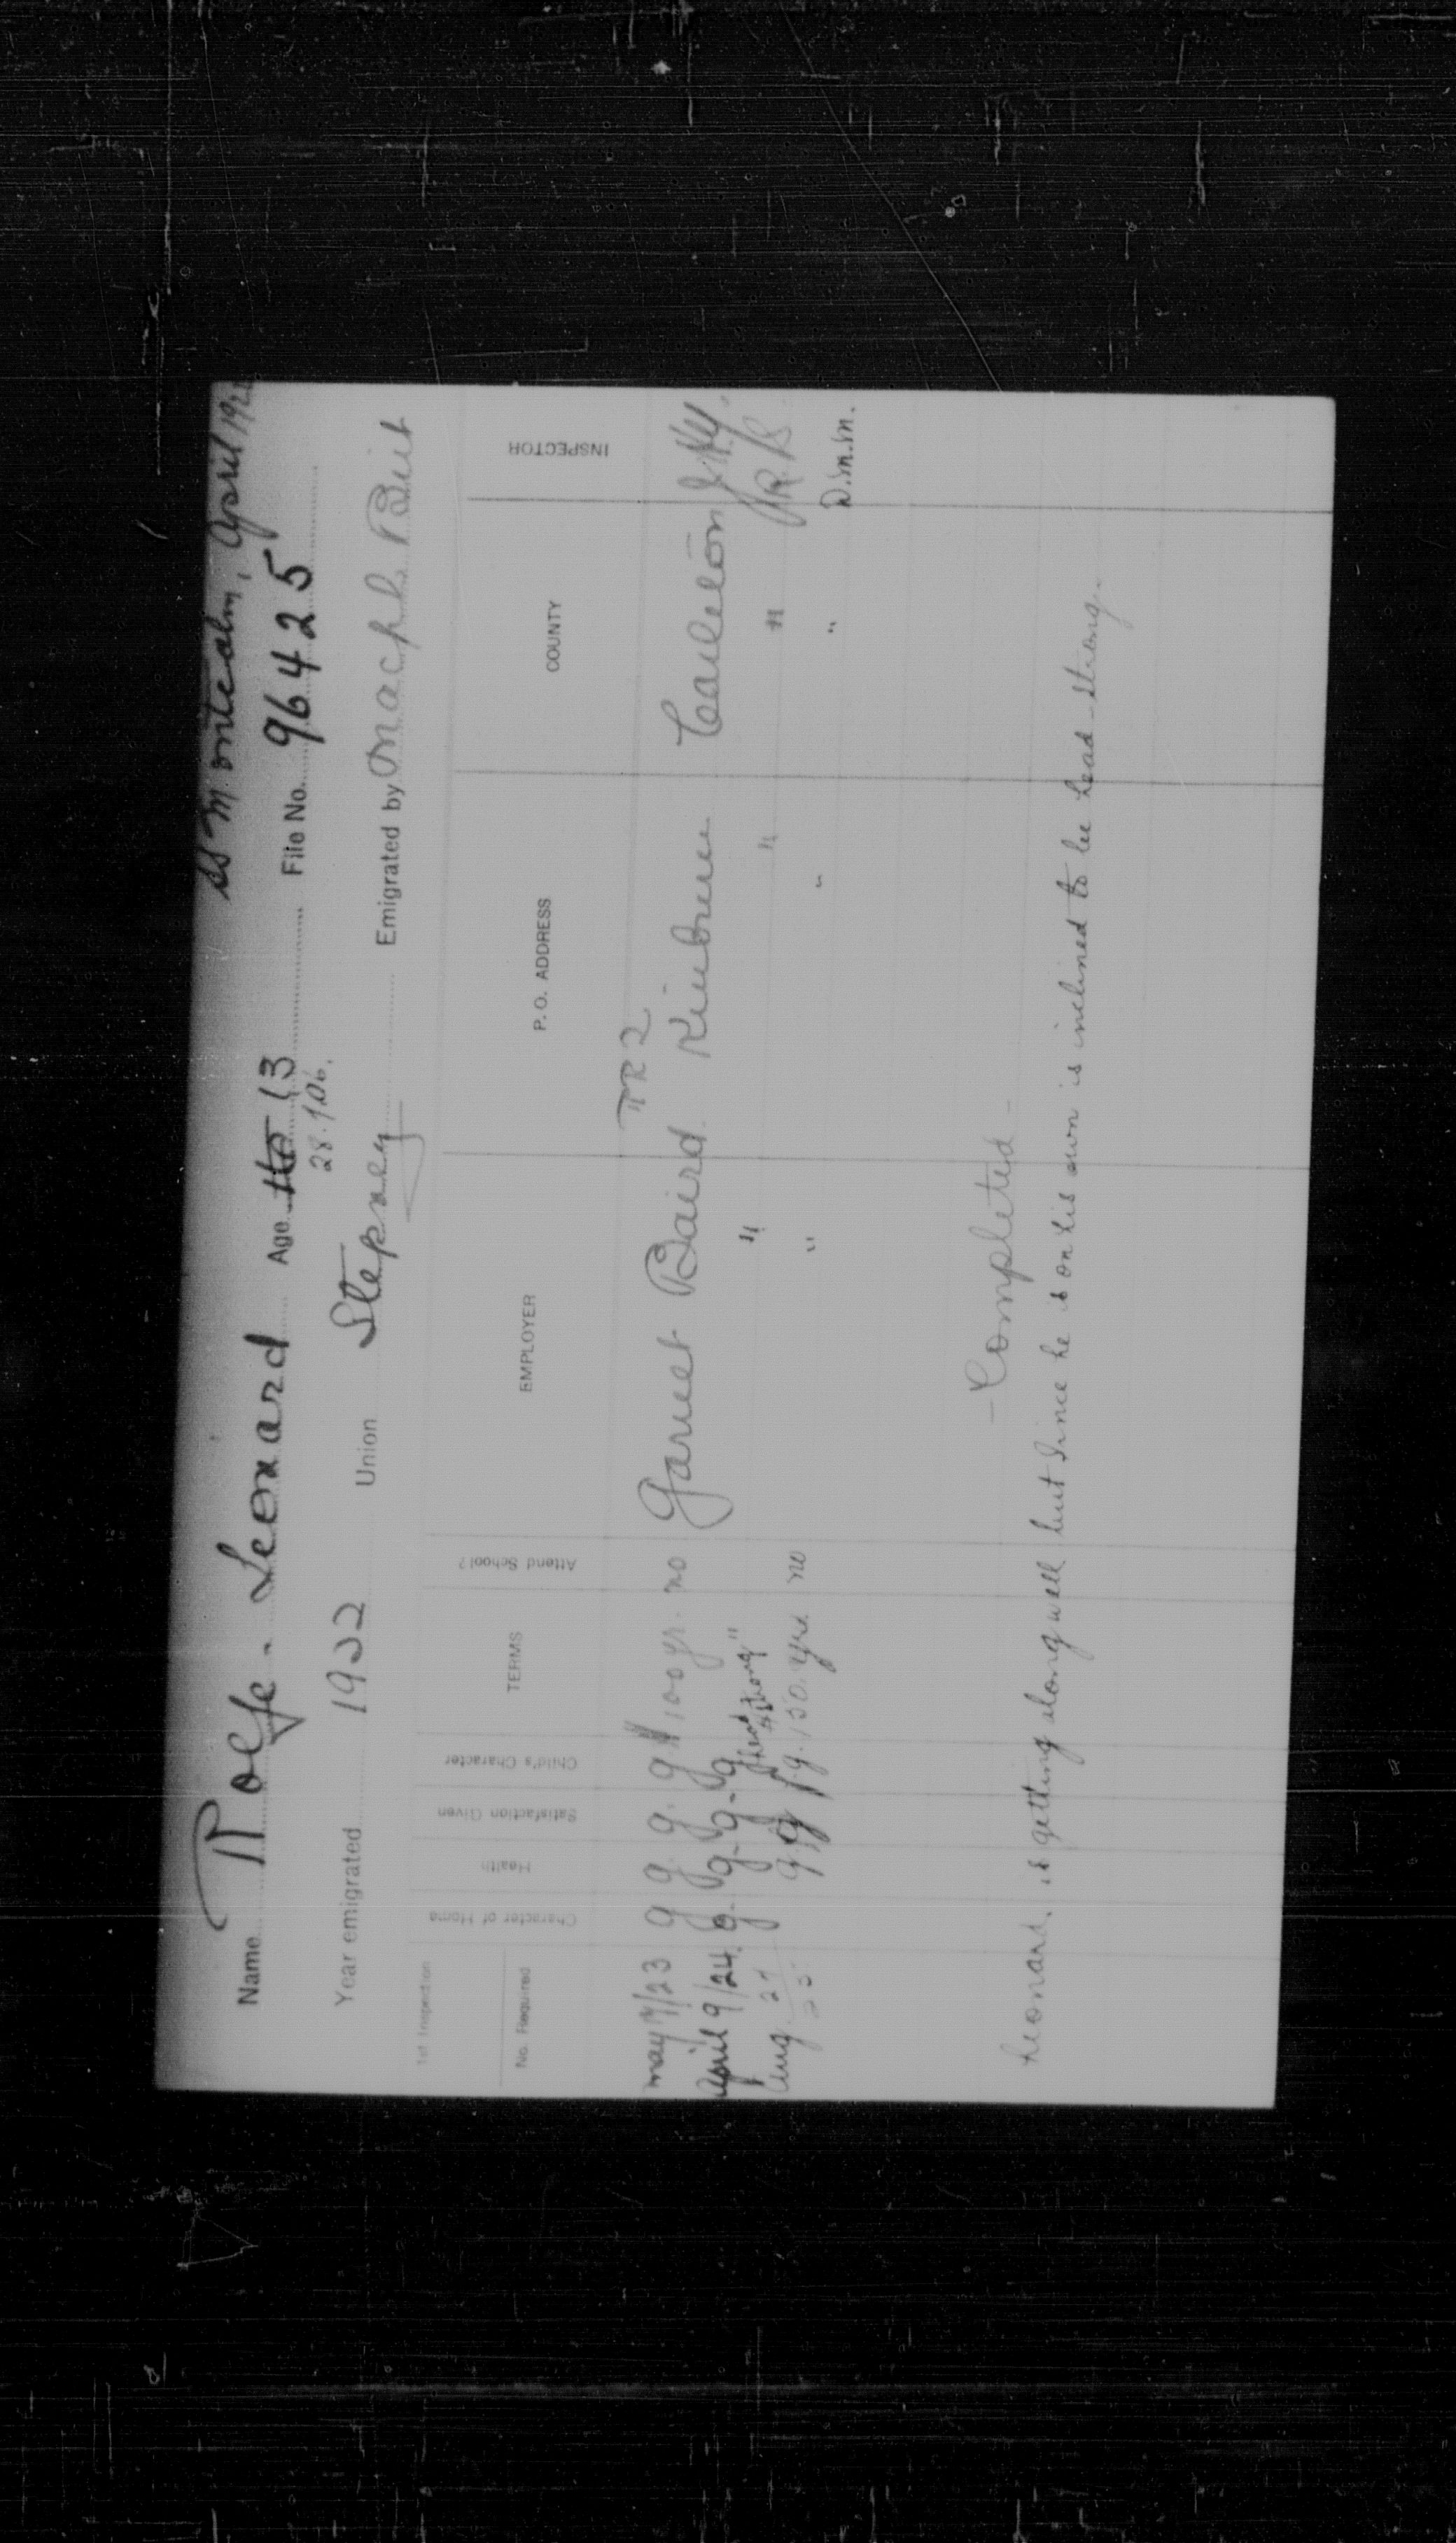 SS Montcalm, April 192
Name Rolfe - Leonard Age 13 File No. 96425
28.
Year emigrated 1922 Union Stepney Emigrated by Macph. Brit
1st Inspection
No. Required Character of Home Health Satisfaction Given Child's Character TERMS Attend School? EMPLOYER P. O. ADDRESS COUNTY INSPECTOR
RR2
May /23 g g g g $100 yr. no Garnet Baird Kinburn Carleton
April 9/24. g. g- g- g " " "
"head strong"
Aug 27 25 g. g f.g. 150. yr no " " " D.M.M.
- Completed -
Leonard, is getting along well but since he is on his own is inclined to be head-strong.